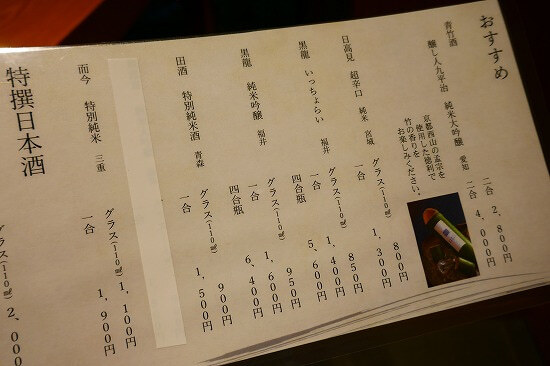 おすすめ
青竹酒
醸し人九平治 純米大吟醸 愛知
二合 2,800円
二合 4,000円
京都西山の孟宗を
使用した徳利で
竹の香りを
お楽しみください。
日高見 超辛口 純米 宮城
グラス(110㎖) 800円
一合 1,300円
黒龍 いっちょらい 福井
グラス(110㎖) 850円
一合 1,400円
四合瓶 5,600円
黒龍 純米吟醸 福井
グラス(110㎖) 950円
一合 1,600円
四合瓶 6,400円
田酒 特別純米酒 青森
グラス(110㎖) 900円
一合 1,500円
而今 特別純米 三重
グラス(110㎖) 1,100円
一合 1,900円
特撰日本酒
グラス(110㎖) 2,000